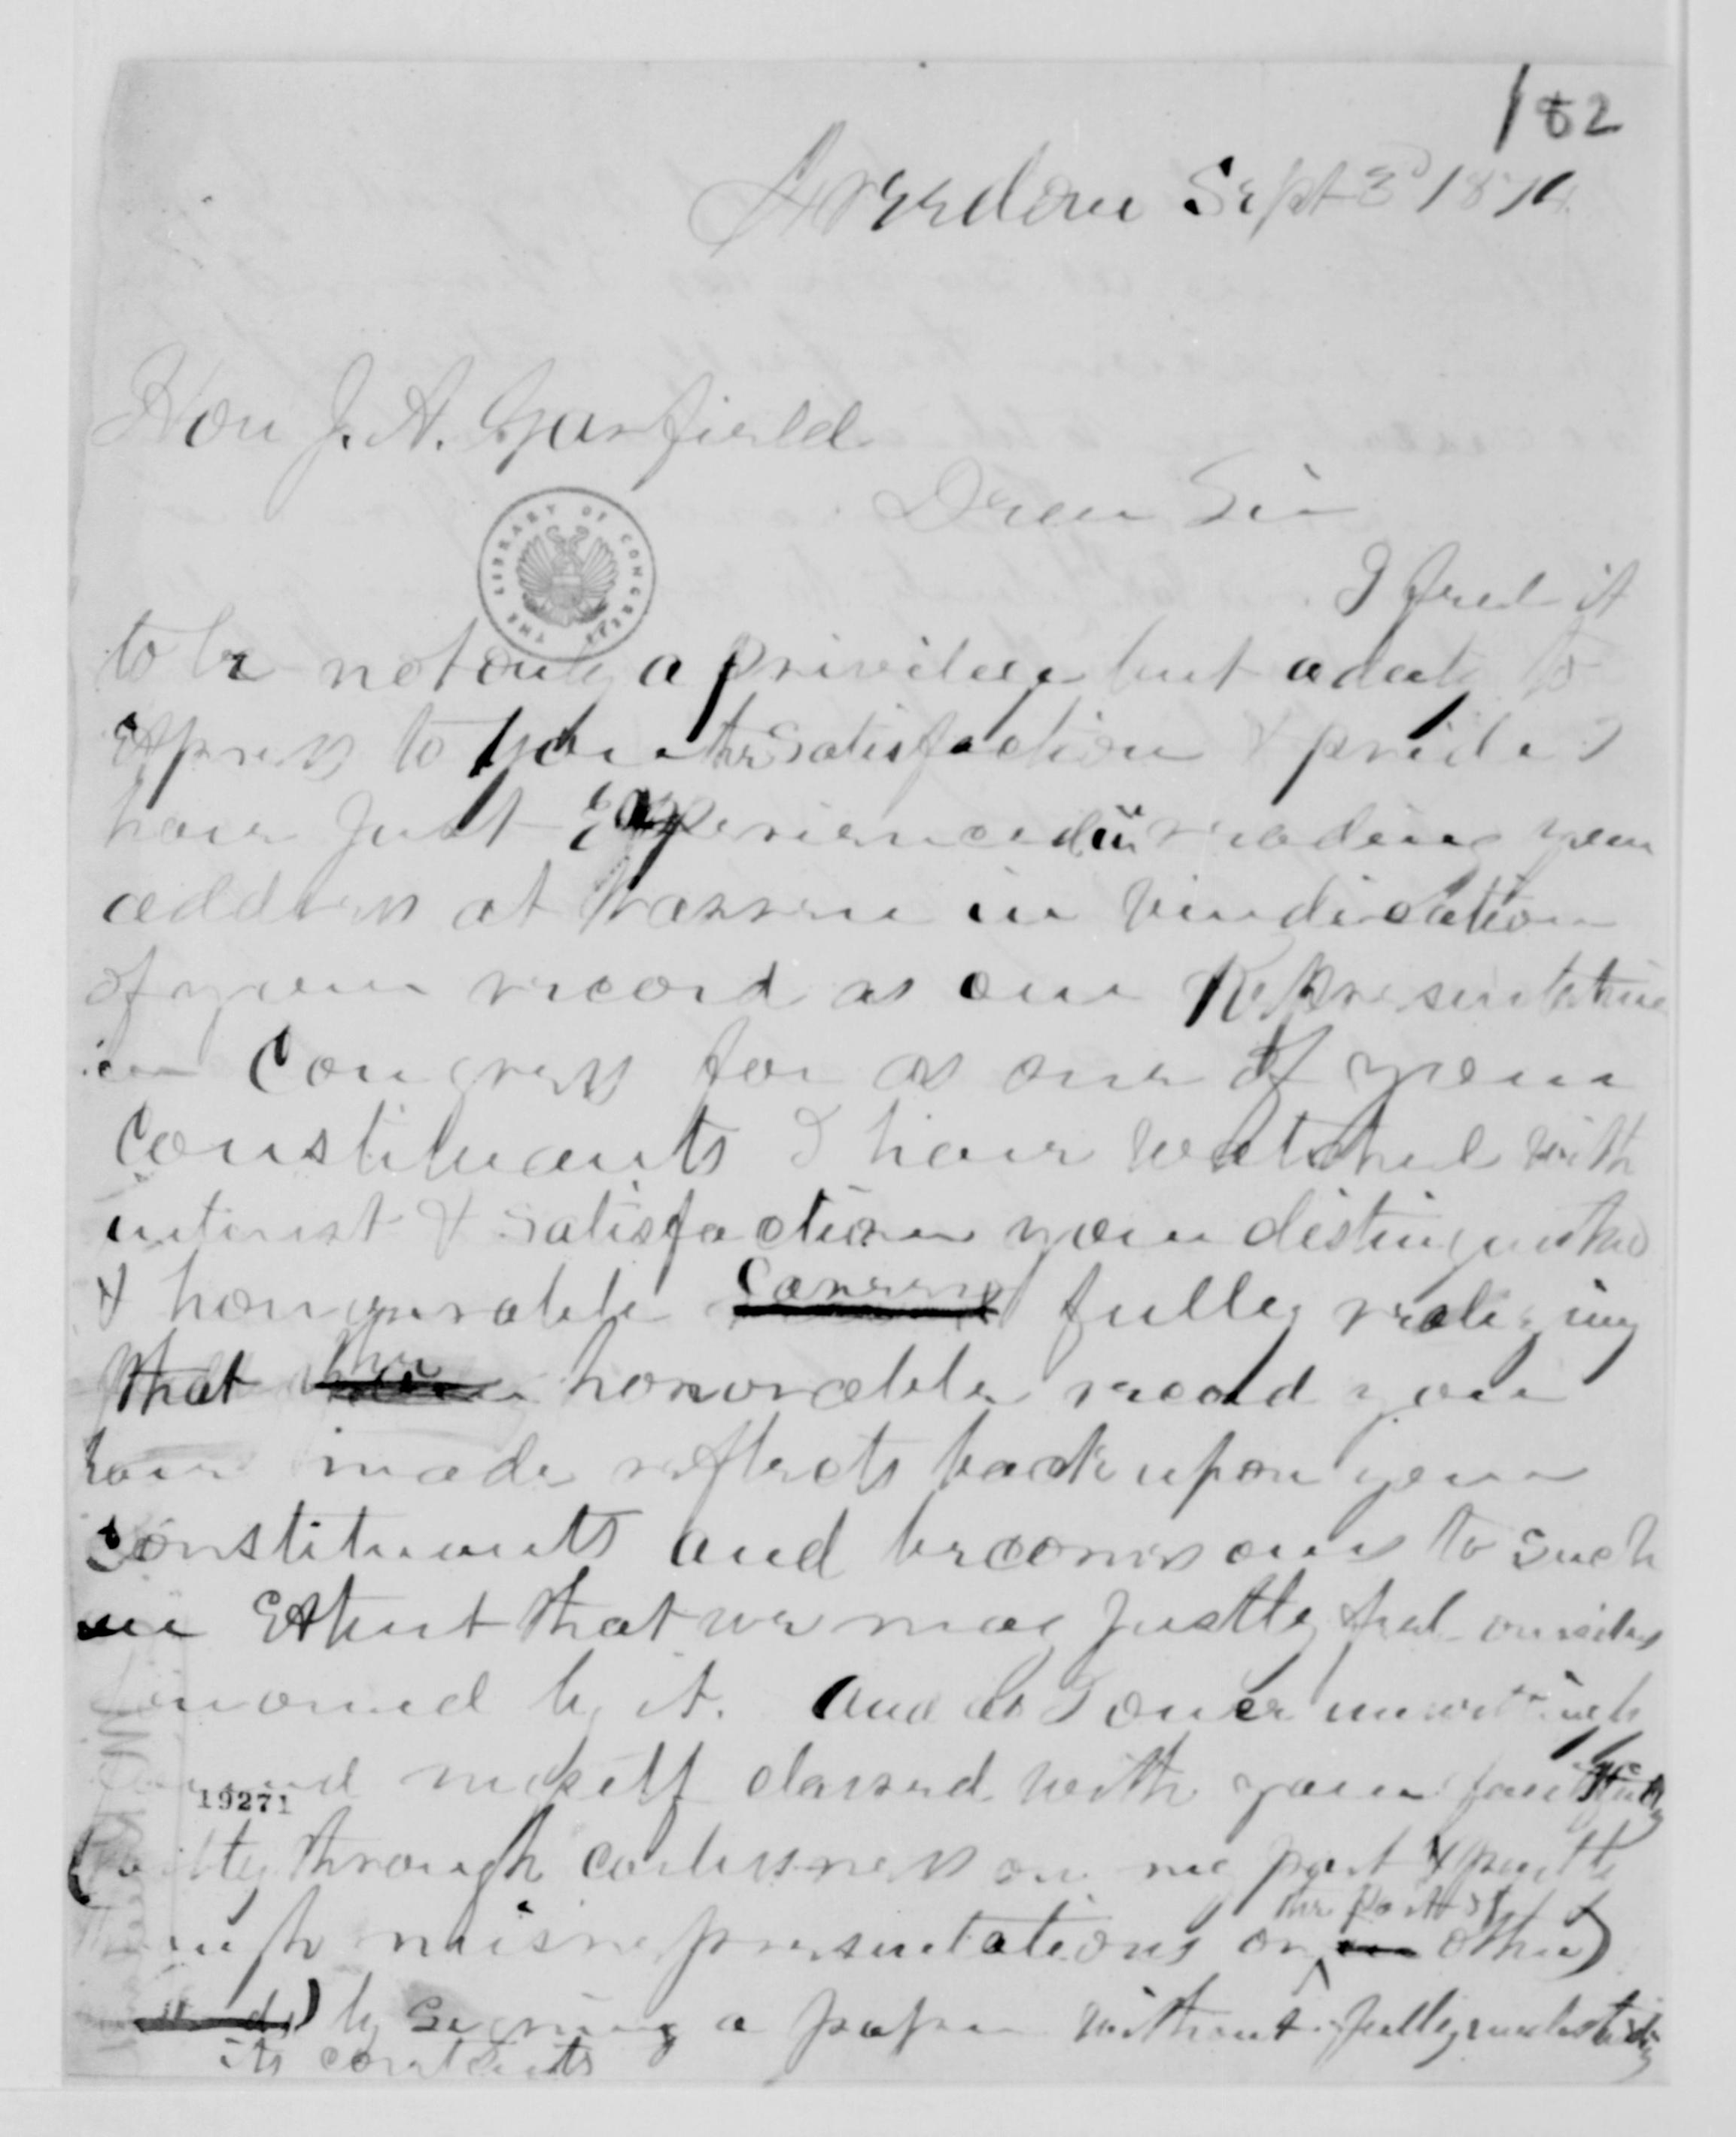 182
Freedom Sept 3d 1874
Hon J. A. Garfield
Dear Sir
THE LIBRARY OF CONGRESS
I feel it
to be not only a privilege but a duty to
express to you the satisfaction & pride I
have just Experienced in reading your
address at Warren in vindication
of your record as our Representative
in Congress for as one of your
Constituants I have watched with
interest & satisfaction your distinguished
& honorable Career fully realizing
that the honorable record you
have made reflects back upon your
Constituents and becomes ours to such
an Extent that we may justly feel ourselves
honored by it. And as I once unwittingly
found myself classed with your
19271
(partly through carlessness on my part & partly
through misrepresentations on the part of others)
by signing a paper without fully understanding
its contents